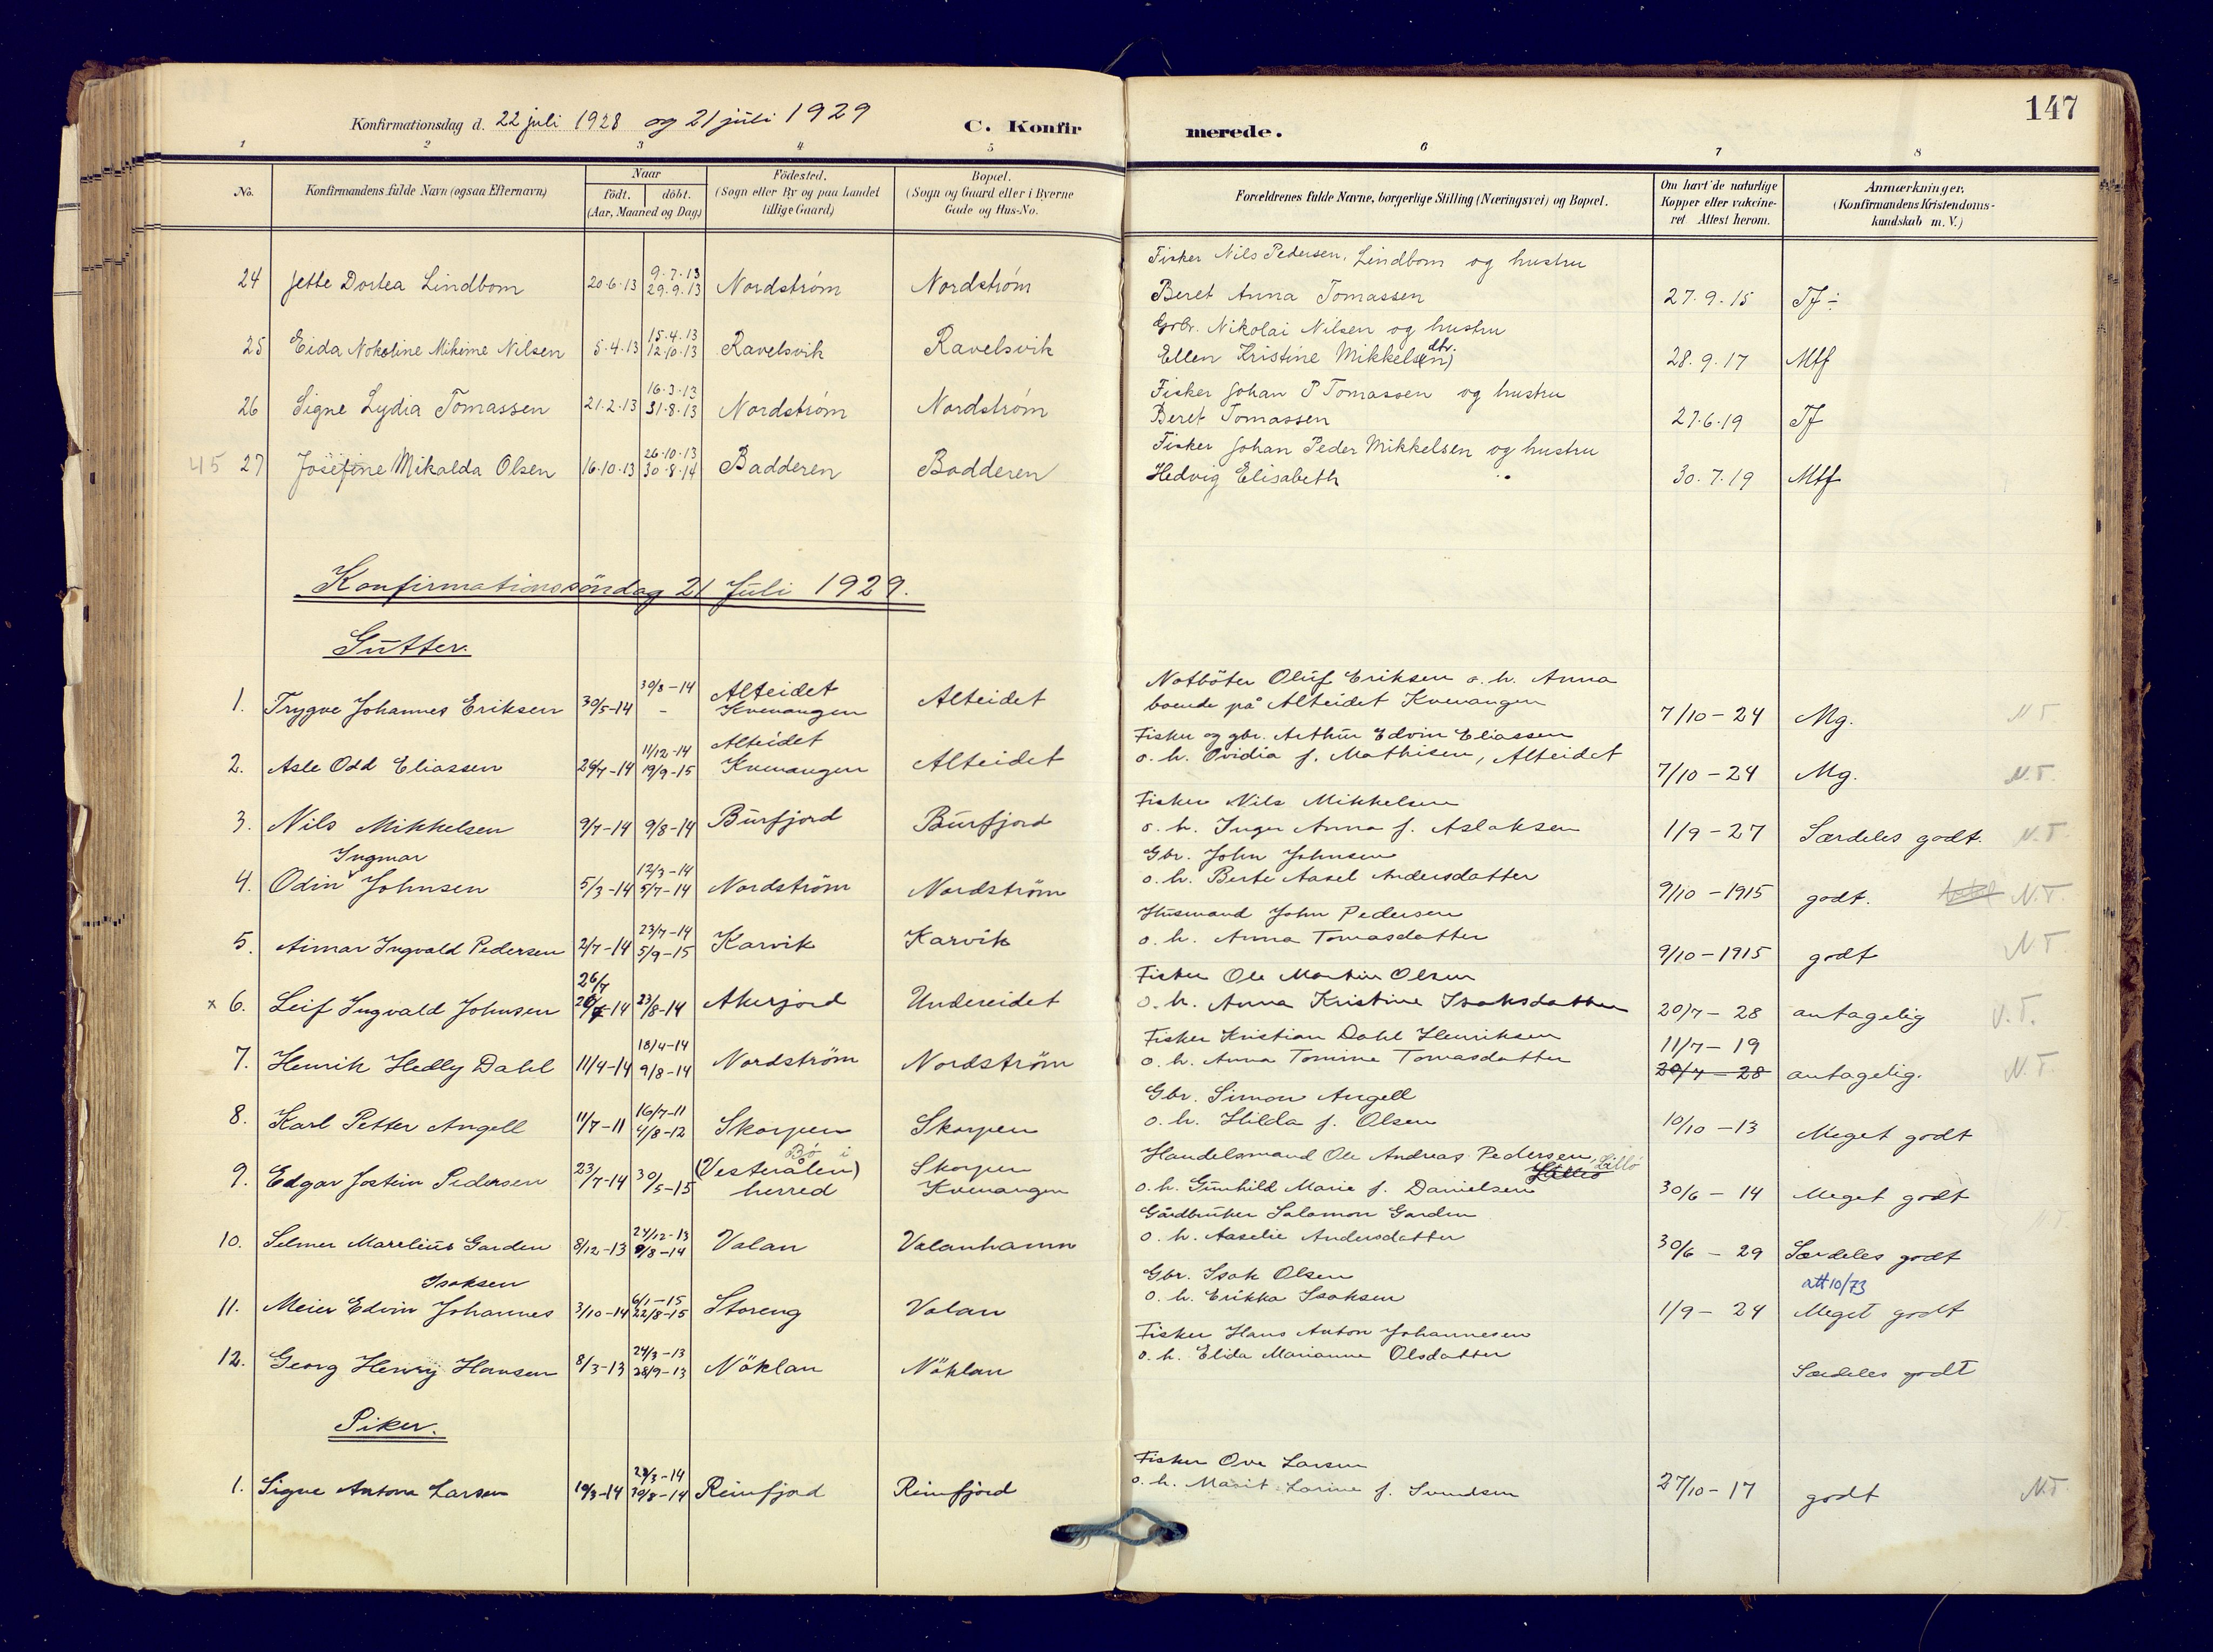 147
Konfirmationsdag d. 22 juli 1928 og 21 juli 1929
C. Konfirmerede.
1 2 3 4 5 6 7 8
No. Konfirmandens fulde Navn (ogsaa Efternavn) Naar födt. döbt. (Aar, Maaned og Dag) Födested. (Sogn eller By og paa Landet tillige Gaard) Bopæl. (Sogn og Gaard eller i Byerne Gade og Hus-No. Forældrenes fulde Navne, borgerlige Stilling (Næringsvei) og Bopæl. Om havt de naturlige Kopper eller vakcineret. Attest herom. Anmærkninger. (Konfirmandens Kristendomskundskab m. V.)
Fisker Nils Pedersen Lindbom og hustru
24 Jette Dortea Lindbom 20.6.13 9.7.13 29.9.13 Nordström Nordström Beret Anna Tomassen 27.9.15 Tf ÷
Gbr. Nikolai Nilsen og hustru
25 Eida Nokoline Mikine Nilsen 5.4.13 15.4.13 12.10.13 Ravelsvik Ravelsvik Ellen Kristine Mikkels(en) dtr. 28.9.17 Mtf
Fisker Johan P Tomassen og hustru
26 Signe Lydia Tomassen 21.2.13 16.3.13 31.8.13 Nordström Nordström Beret Tomassen 27.6.19 Tf
Fisker Johan Peder Mikkelsen og hustru
45 27 Josefine Mikalda Olsen 16.10.13 26.10.13 30.8.14 Badderen Badderen Hedvig Elisabeth 30.7.19 Mtf
Konfirmationssöndag 21 Juli 1929.
Gutter.
Notböter Oluf Eriksen o. h. Anna
1. Trygve Johannes Eriksen 30/5-14 30/8-14 - Alteidet Kvenangen Alteidet boende på Alteidet Kvenangen 7/10-24 Mg. N T
Fisker og gbr. Arthur Edvin Eliassen
2. Asle Odd Eliassen 26/7-14 11/12-14 19/9-15 Alteidet Kvenangen Alteidet o. h. Ovidia f. Mathisen, Alteidet 7/10-24 Mg. N.T.
Fisker Nils Mikkelsen
3. Nils Mikkelsen 9/7-14 9/8-14 Burfjord Burfjord o. h. Inger Anna f. Aslaksen 1/9-27 Særdeles godt. N.T.
Gbr. John Johnsen
4. Odin Ingmar Johnsen 5/3-14 12/3-14 5/7-14 Nordström Nordström o. h. Berte Aasel Andersdatter 9/10-1915 godt. N.T.
Husmand John Pedersen
5. Aimar Ingvald Pedersen 2/7-14 23/7-14 5/9-15 Karvik Karvik o. h. Anna Tomasdatter 9/10-1915 godt N T
Fisker Ole Martin Olsen
x 6. Leif Ingvald Johnsen 26/7 -14 23/8-14 Akerjord Undereidet o. h. Anna Kristine Isaksdatter 20/7-28 antagelig N.T.
Fisker Kristian Dahl Henriksen 11/7-19
7. Henrik Hedly Dahl 11/4-14 18/4-14 9/8-14 Nordström Nordström o. h. Anna Tomine Tomasdatter 20/7-28 antagelig. N.T.
Gbr. Simon Angell
8. Karl Petter Angell 11/7-11 16/7-11 4/8-12 Skorpen Skorpen o. h. Hilda f. Olsen 10/10-13 Meget godt
Handelsmand Ole Andreas Pedersen, Lillö
9. Edgar Jostein Pedersen 23/7-14 30/5-15 Bö i (Vesterålen) herred Skorpen Kvenangen o. h. Gunhild Marie f. Danielsen 30/6-14 Meget godt
Gårdbruker Salomon Garden
10. Selmer Marelius Garden 8/12-13 24/12-13 9/8-14 Valan Valanhamn o. h. Aaselie Andersdatter 30/6-29 Særdeles godt
Gbr. Isak Olsen att 10/73
11. Meier Edvin Johannes Isaksen 3/10-14 6/1-15 22/8-15 Storeng Valan o. h. Erikka Isaksen 1/9-24 Meget godt
Fisker Hans Anton Johannesen
12. Georg Henry Hansen 8/3-13 24/3-13 28/9-13 Nöklan Nöklan o. h. Elida Marianne Olsdatter Særdeles godt
Piker.
Fisker Ove Larsen
1. Signe Antona Larsen 10/3-14 29/3-14 30/8-14 Reinfjord Reinfjord o. h. Marit Larine f. Svendsen 27/10-17 godt N.T